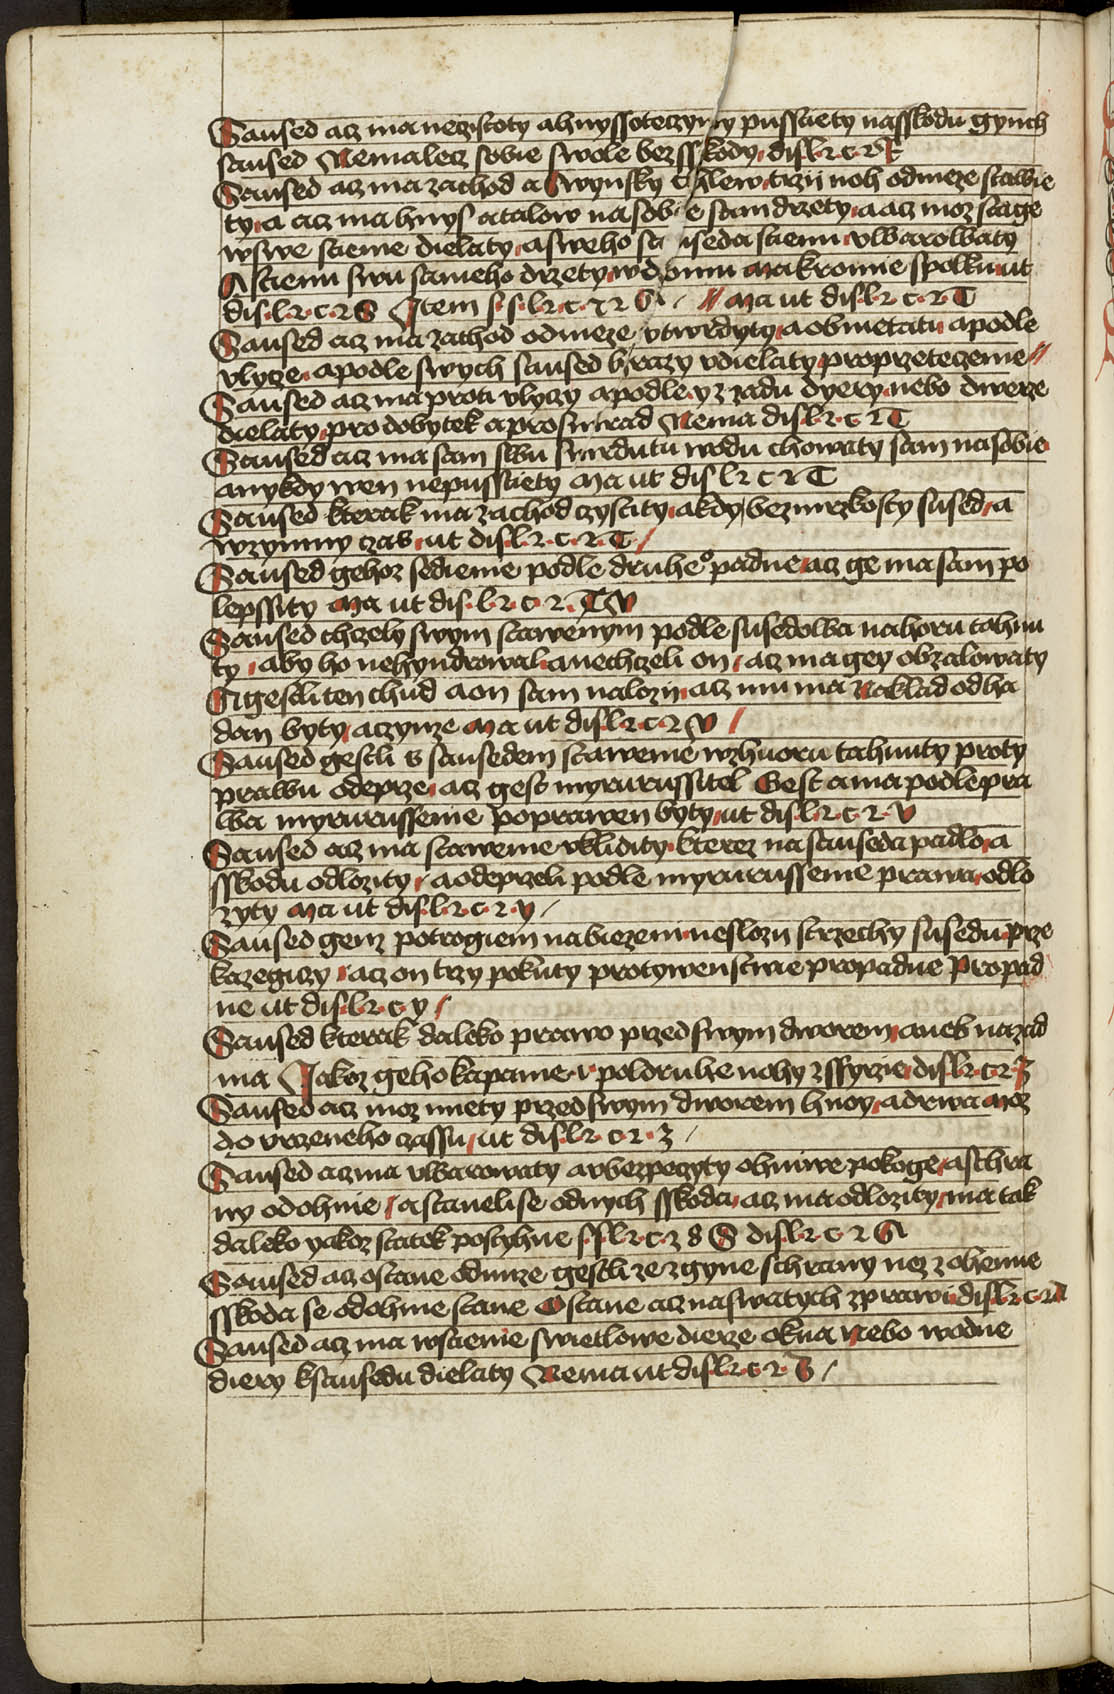 Saused acz ma neczistoty ahnyssoteczyny pussciety nasskodu gynch
saused Nemalecz sobie swole bez sskody disl2 c 2 R
Saused acz ma zachod a swynsky chlew trzii noh odmeze stawie
ty a acz ma hnys atalow nasobie sam drzety a acz moz stage
wswe stiene dielaty asweho sauseda stienu vwarowaty
A stienu swu staneho drzety makronne spolku ut
dis l2 c 2 S Item s s l2 c 2 2 // Ma ut disl2 c 2 T
Saused acz ma zachod odmeze vtwrdyty aobmetatu apodle
vlycze apodle swych saused hrazy vdielaty proprzeteczenie //
Saused acz ma proti vlyczy apodle yz radu dyery nebo dwerze
dielaty pro dobytek aprosmrad Nema disl2 c 2 T
Saused acz ma sam swu smrdutu wodu chowaty sam nasobie
anykdy wen nepussciety Ma ut dis l2 c 2 T
Saused kterak ma zachod czystity akdy bezmrzkosty sused a
wzymny czas ut disl2 c 2 T /
Saused gehoz sedienie podle druheo padne acz ge ma sam po
lepssity Ma ut dis l2 c 2 T V
Saused chtzely swym stawenym podle susedowa nahoru tahnu
ty aby ho nehyndrowal anechczeli on acz ma gey obzalowaty
A gestliten chud aon sam nalozii acz mu ma Naklad odha
dan byty aczymze Ma ut disl2 c 2 V /
Saused gestli s sausedem stawenie wzhuoru tahnuty proty
prawu odeprze acz gest myrurussitel Gest ama podlepra
wa myrurussenie poprawen byty ut disl2 c 2 V
Saused acz ma stawenie vklidity kterez nasauseda padlo a
sskodu odlozity aodeprzeli podle myrurussenie prawa odlo
zyty Ma ut disl2 c 2 y /
Saused genz potrogiem nabiezeni neslozii strzechy susedu prze
kazegiczy acz on trzy pokuty protywenstwie propadne Propad
ne ut disl2 c y /
Saused kterak daleko prawo przed swym dworem aneb nazad
ma Jakoz geho kapanie poldruhe nohy zssyrzie disl2 c 2 Z
Saused acz moz mnety przed swym dworem hnoy adrwa Moz
do vrzeneho czassu ut disl2 c 2 Z /
Saused acz ma vwarowaty avbezpeczyty ohniwe pokoge aschra
ny odohnie astanelise odnych sskoda acz ma odlozity ma tak
daleko yakoz statek postyhne s sl2 c 2 8 S disl2 c 2 A
Saused acz ostane odmze gestli zezgyne schrany nez z ohenne
sskoda se odohnie stane Ostane acz naswatych zprawi disl2 c 2
Saused acz ma wstienie swietlowe dierze okna Nebo wodne
diery ksausedu dielaty Nema ut disl2 c 2 /